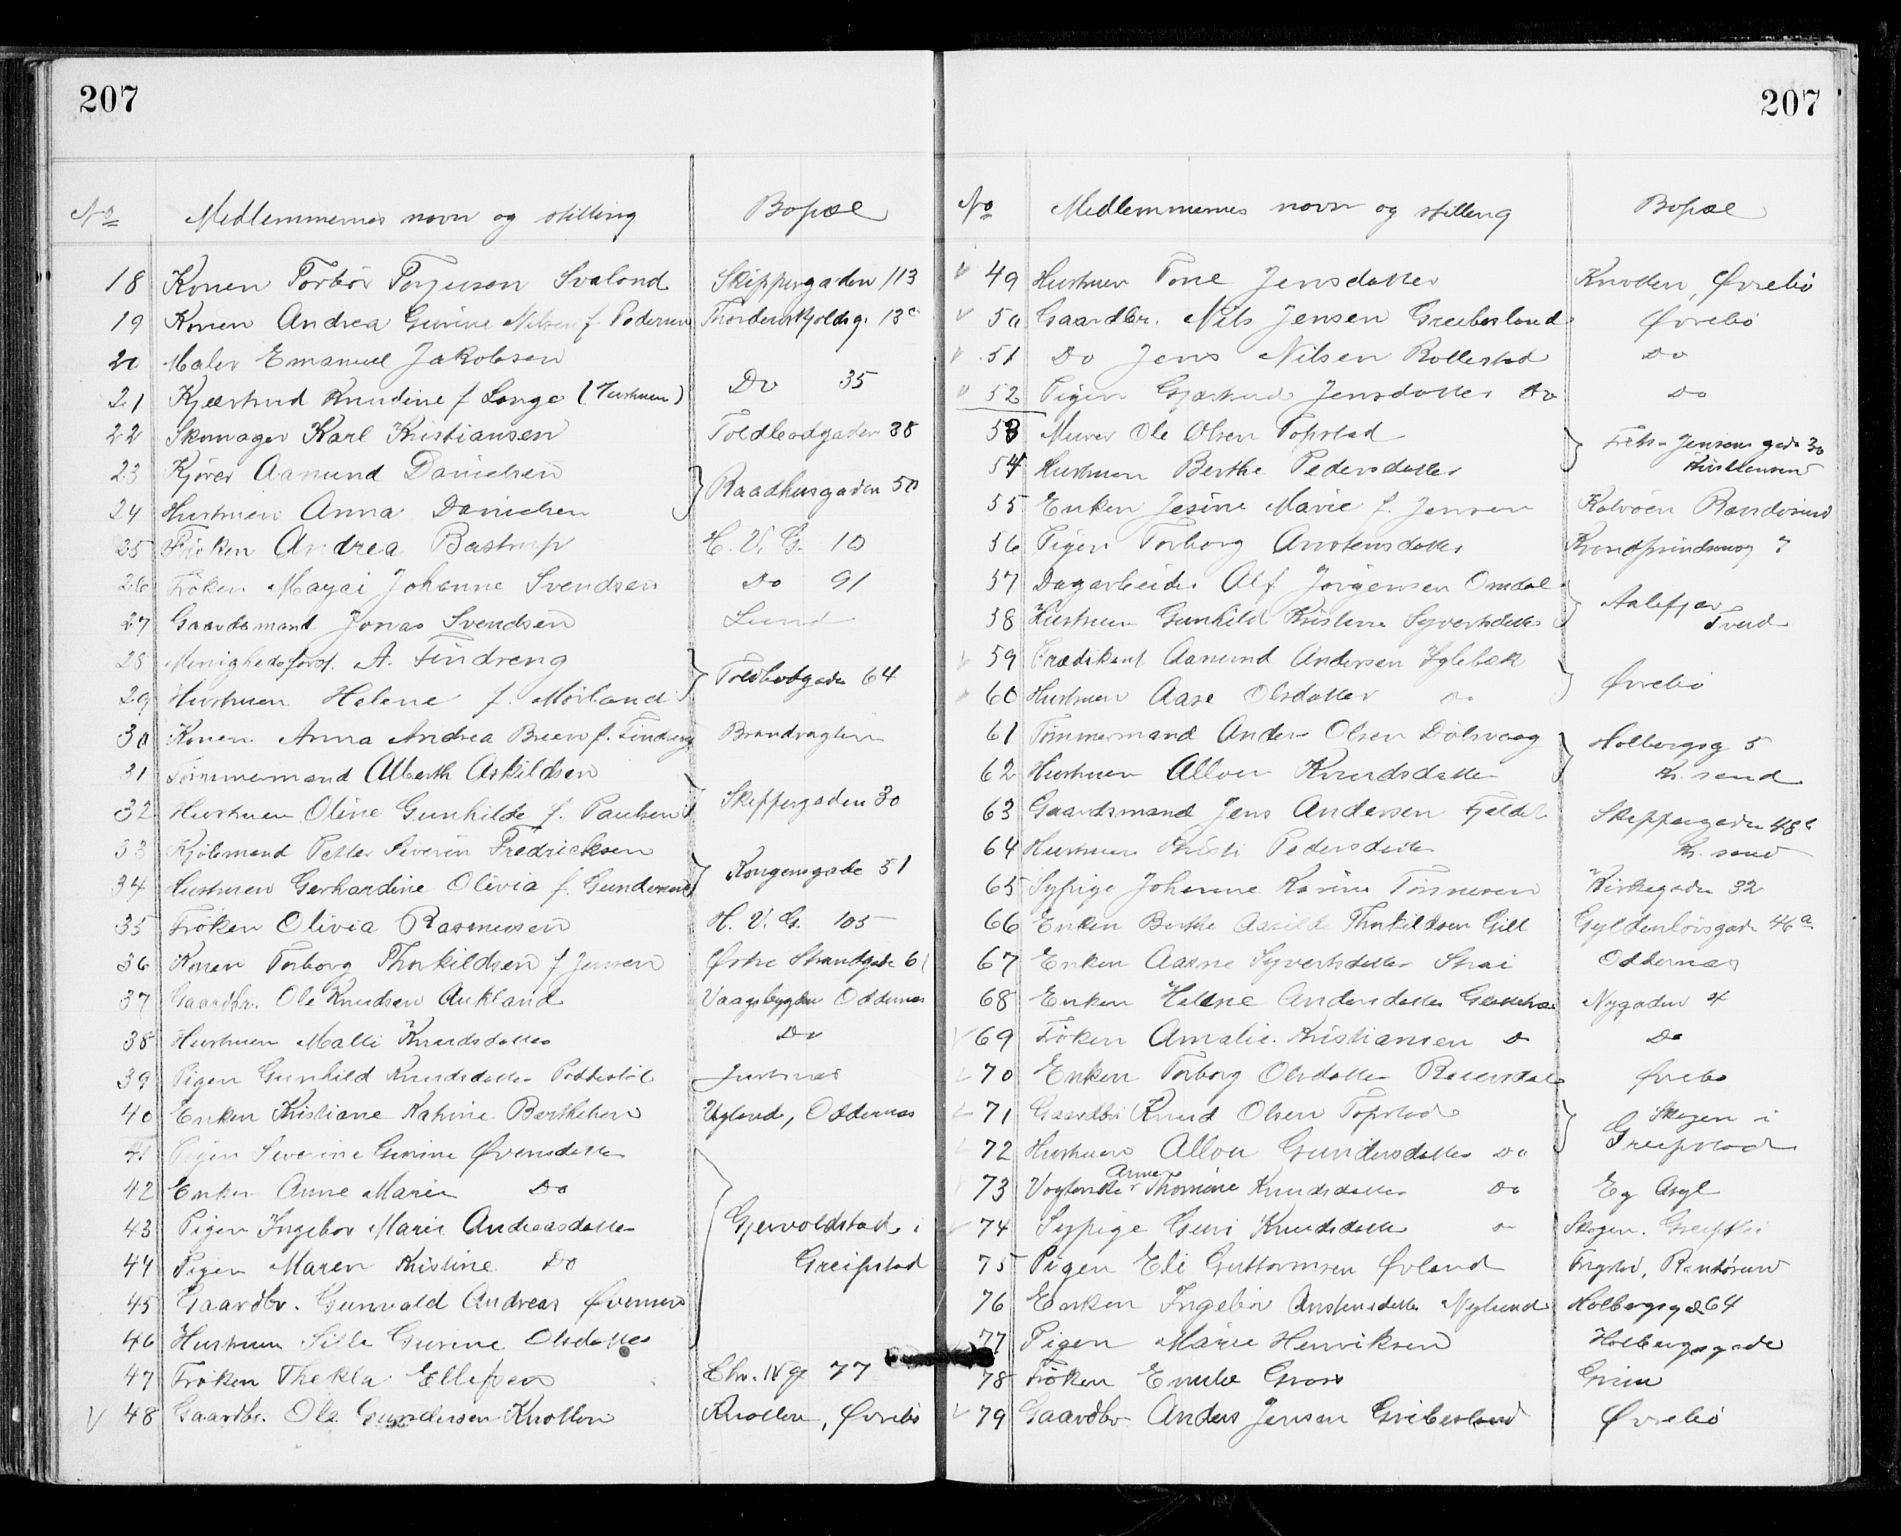 207
No Medlemmernes navn og stilling Bopæl
18 Konen Torbör Torjusen Svaland Skippergaden 113
19 Konen Andrea Gurine Nilsen f. Pedersen Thordenskjoldsg. 13c
20 Maler Emanuel Jakobsen
21 Kjærstrud Knudine f Lange (Hustruen) Do 35
22 Skomager Karl Kristiansen Toldbodgaden 38
23 Kjører Aanund Danielsen
24 Hustruen Anna Danielsen } Raadhusgaden 50
25 Fröken Andrea Bastrup H. V. G. 10
26 Fröken Mayai Johanne Svendsen Do 91
27 Gaardsmand Jonas Svendsen Lund
28 Menighedsforst. A. Tindreng
29 Hustruen Helene f. Mörland } Toldbodgaden 64
30 Konen Anna Andrea Breen f. Tindreng Brandvagten
31 Tömmermand Alberth Askildsen
32 Hustruen Oline Gunhilde f. Paulsen } Skippergaden 30
33 Kjölemand Petter Severin Fredricksen
34 Hustruen Gerhardine Olivia f. Gundersen } Kongensgade 51
35 Fröken Olivia Rasmussen H. V. G. 105
36 Konen Torborg Thorkildsen f Jensen Østre Strandgade 61
37 Gaardbr. Ole Knudsen Aukland Vaagsbygden Oddernes
38 Hustruen Malli Knudsdatter Do
39 Pigen Gunhild Knudsdatter Justnes
40 Enken Kristiane Katrine Berthelsen Ugland, Oddernes
41 Pigen Severine Gurine Øvensdatter
42 Enken Anne Marie Do
43 Pigen Ingebor Marie Andreasdatter Gjervoldstad i
44 Pigen Maren Kristine Do Greipstad
45 Gaardbr. Gunvald Andreas Øvensen
46 Hustruen Sille Gurine Olsdatter
47 Fröken Thekla Ellefsen Chr. IV g. 77
V 48 Gaardbr. Ole Gundersen Knotten Knotten, Øvrebö
207
No Medlemmernes navn og stilling Bopæl
V 49 Hustruen Tone Jensdatter Knoden, Øvrebö
V 50 Gaardbr. Nils Jensen Greibesland Øvrebö
V 51 Do Jens Nilsen Rollestad Do
V 52 Pigen Gjærtrud Jensdatter Do Do
53 Murer Ole Olsen Topstad
54 Hustruen Berthe Pedersdatter } Fr. Jensens gade 30 Kristiansand
55 Enken Jesine Marie f. Jensen Kalvöen Randösund
56 Pigen Torborg Anstensdatter Kronprindsensg 7
57 Dagarbeider Alf Jörgensen Omdal
58 Hustruen Gunhild Kristine Syvertsdatter } Aalefjær Tveid
V 59 Prædikant Aanund Andersen Iglebæk
V 60 Hustruen Aase Olsdatter Do } Øvrebö
61 Tömmermand Anders Olsen Dölsvaag
62 Hustruen Allou Knudsdatter } Holbergsg 5 Kr. sand
63 Gaardsmand Jens Andersen Fjeldet Skippergaden 48b
64 Hustruen Kristi Pedersdatter Kr. sand
65 Sypige Johanne Karine Tönnesen Kirkegaden 32
66 Enken Berthe Aasilde Thorkildsen Gill Gyldenlövsgade 46a
67 Enken Aasne Syvertsdatter Strai Oddernes
68 Enken Hellene Andersdatter Nygaden 4
V 69 Fröken Amalie Kristiansen Do Do
V 70 Enken Torborg Olsdatter Reiersdal Øvrebö
V 71 Gaardbr. Knud Olsen Topstad Skogen i
V 72 Hustruen Allou Gundersdatter Do } Greipstad
73 Vogterske Anne Thomine Knudsdatter Do Eg Asyl
V 74 Sypige Guri Knudsdatter Do Skogen. Greipstad
75 Pigen Eli Guttormsen Øvland Randösund
76 Enken Ingebör Anstensdatter Nylund Holbergsgd 64
77 Pigen Marie Henriksen Holbergsgade
78 Fröken Emilie Gross Grim
V 79 Gaardbr Anders Jensen Gribesland Øvrebö